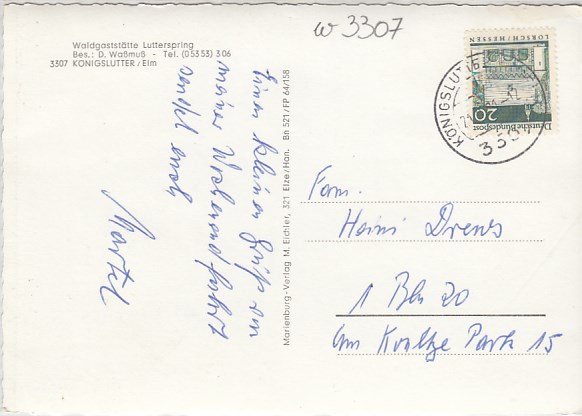 w 3307
Waldgaststätte Lutterspring
Bes.: D. Waßmuß - Tel. (053 53) 3 06
3307 KÖNIGSLUTTER/Elm
Einen kleinen Gruß von
meiner Wochenendfahrt
sendet euch
Martel
Marienburg-Verlag M. Eichler, 321 Elze/Han. Bn 521/FP 64/158
LORSCH/HESSEN
20
Deutsche Bundespost
KÖNIGSLUTTER
Fam.
Heini Drews
1 Bln 20
Am Kraltze Park 15